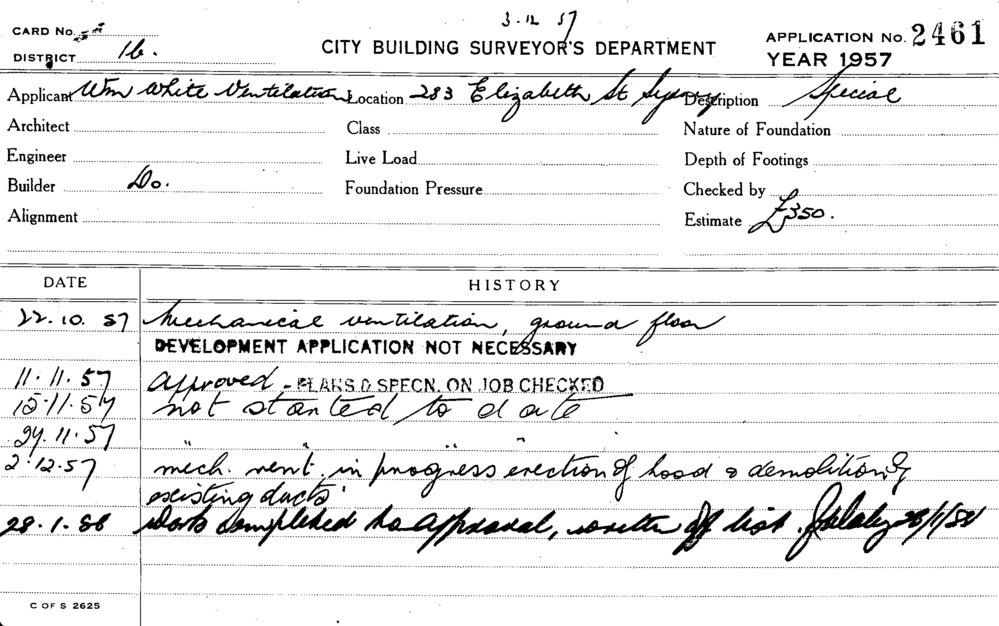 3.12.57
CARD No.
CITY BUILDING SURVEYOR'S DEPARTMENT
APPLICATION No. 2461
DISTRICT 16.
YEAR 1957
Applicant Wm White Ventilation Location 283 Elizabeth St Sydney Description Special
Architect Class Nature of Foundation
Engineer Live Load Depth of Footings
Builder Do. Foundation Pressure Checked by
Alignment Estimate £350.
DATE HISTORY
22.10.57 Mechanical ventilation, ground floor
DEVELOPMENT APPLICATION NOT NECESSARY
11.11.57 Approved - PLANS & SPECN. ON JOB CHECKED
15.11.57 not started to date
29.11.57 " " "
2.12.57 mech. vent. in progress erection of hood & demolition of
existing ducts
28.1.58 Work completed to approval, written off list. 28/1/58
C OF S 2625